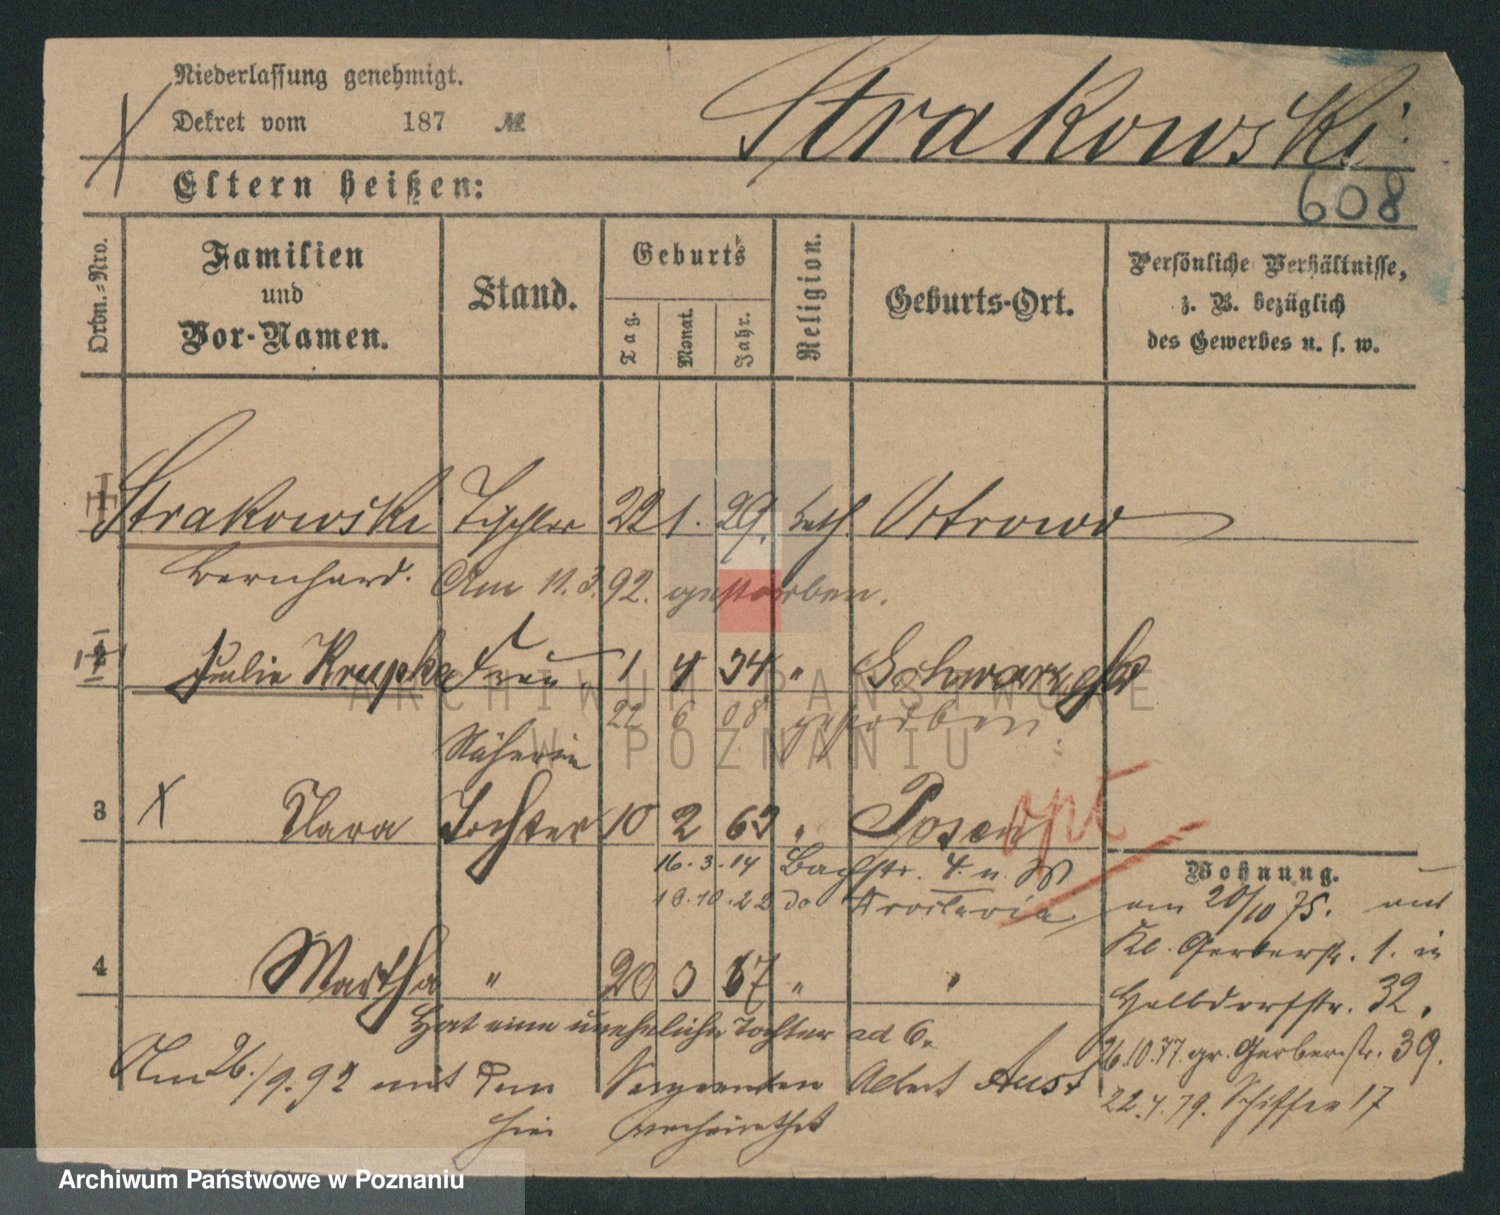 Niederlassung genehmigt.
Dekret vom 187 №
Strakowski
Eltern heißen:
608
Ordn.-Nro.
Familien
und
Vor-Namen.
Stand.
Geburts
Tag.
Monat.
Jahr.
Religion.
Geburts-Ort.
Persönliche Verhältnisse,
z. B. bezüglich
des Gewerbes u. s. w.
1 Strakowski Tischler 22 1. 29. kath. Ostrowo
Bernhard. Am 11.3.92. gestorben.
2 Julie Krupka Frau 1 4 34 "
22 6 08 gestorben
Näherin
3 Clara Tochter 10 2 63 " Posen
opt
16.3.14 Bachstr.
19.10.22 do
Wohnung.
am 20/10 75.
Kl. Gerberstr. 1. in
Halbdorfstr. 32.
4 Martha " 20 3 67 " "
Hat eine uneheliche Tochter ad 6.
26.10.77. gr. Gerberstr. 39.
Am 26./9.92 mit dem Sergeanten Albert Aust
22.4.79. Schiffer 17
hier verheirathet
ARCHIWUM PAŃSTWOWE
W POZNANIU
Archiwum Państwowe w Poznaniu